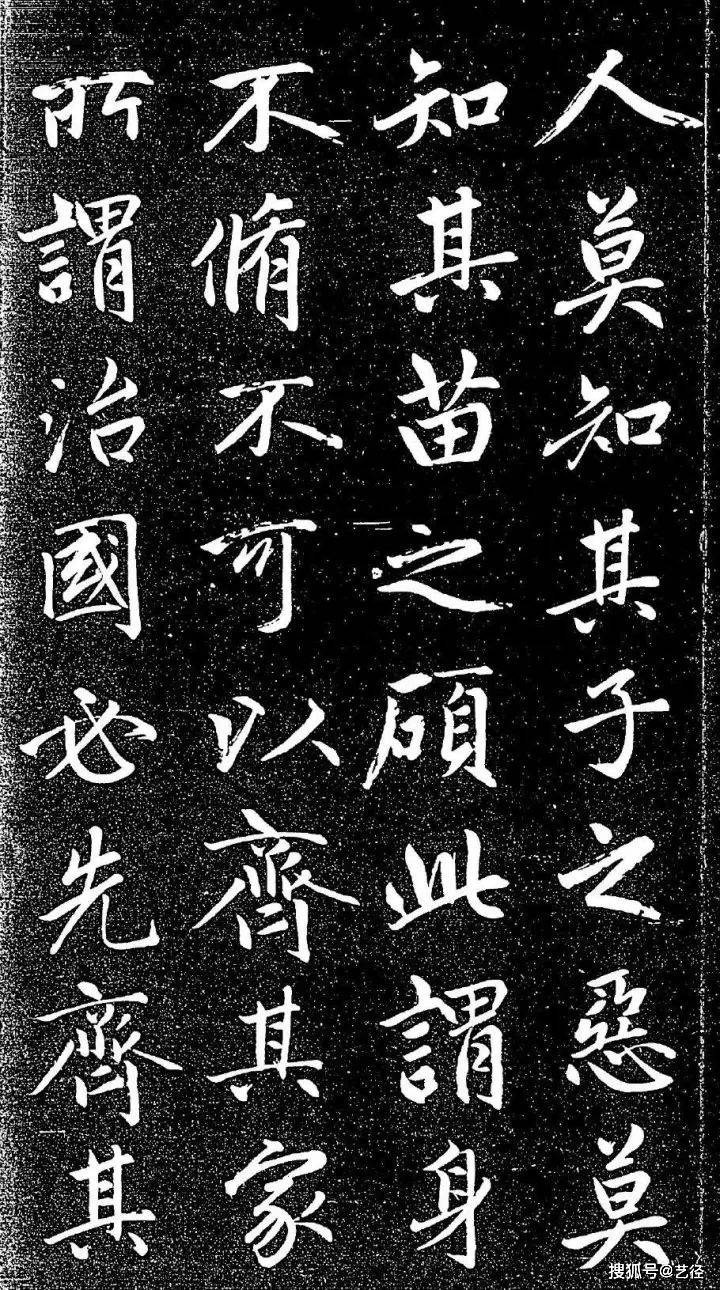 人莫知其子之惡莫
知其苗之碩此謂身
不脩不可以齊其家
所謂治國必先齊其
搜狐号@艺径